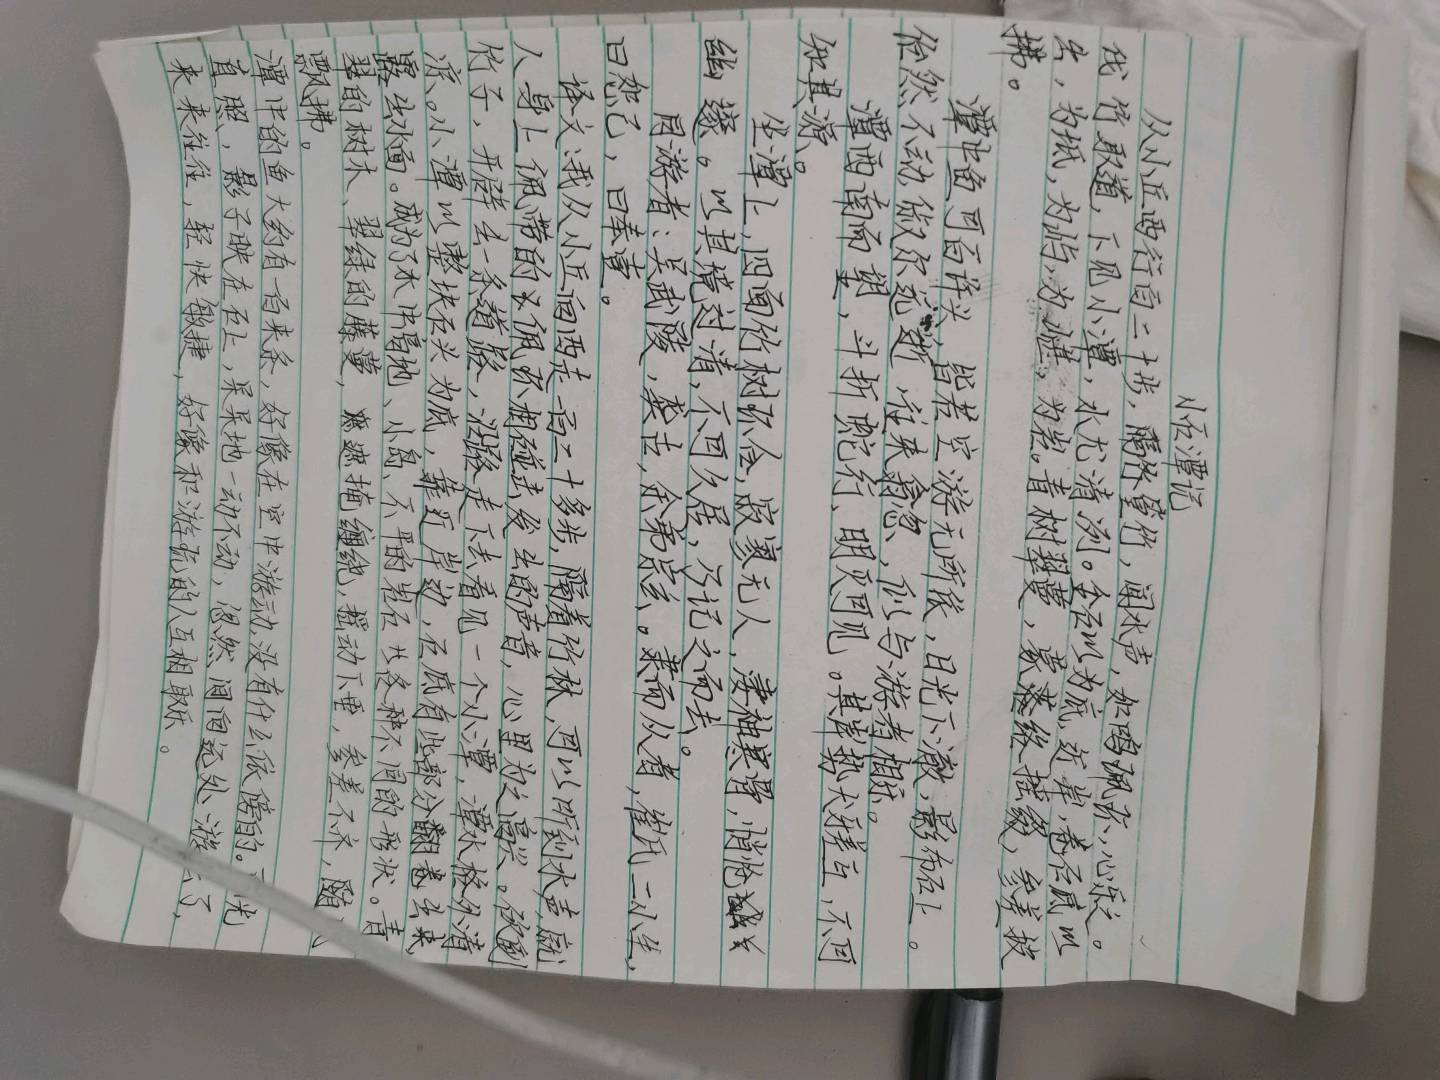 小石潭记
从小丘西行百二十步，隔篁竹，闻水声，如鸣佩环，心乐之。
伐竹取道，下见小潭，水尤清冽。全石以为底，近岸，卷石底以
出，为坻，为屿，为嵁，为岩。青树翠蔓，蒙络摇缀，参差披
拂。
潭中鱼可百许头，皆若空游无所依，日光下澈，影布石上。
佁然不动，俶尔远逝，往来翕忽，似与游者相乐。
潭西南而望，斗折蛇行，明灭可见。其岸势犬牙差互，不可
知其源。
坐潭上，四面竹树环合，寂寥无人，凄神寒骨，悄怆
幽邃。以其境过清，不可久居，乃记之而去。
同游者：吴武陵，龚古，余弟宗玄。隶而从者，崔氏二小生，
曰恕己，曰奉壹。
译文：我从小丘向西走一百二十多步，隔着竹林，可以听到水声，就
人身上佩带的玉佩环相碰击发出的声音，心里为之高兴。砍倒
竹子，开辟出一条道路，沿路走下去看见一个小潭，潭水格外清
凉。小潭以整块石头为底，靠近岸边，石底有些部分翻卷出来
露出水面。成为了水中高地、小岛、不平的岩石 各种不同的形状。青
翠的树木、翠绿的藤蔓，遮掩缠绕，摇动下垂，参差不齐，随
飘拂。
潭中的鱼大约有百来条，好像在空中游动，没有什么依傍的。光
直照，影子映在石上，呆呆地一动不动，忽然间向远处游去了，
来来往往，轻快敏捷，好像和游玩的人互相取乐。